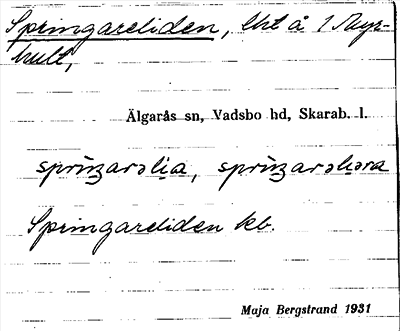 Springareliden, lht å 1 Myr-
hult,
Älgarås sn, Vadsbo hd, Skarab. l.
sprìŋarəlia, sprìŋarəliəra
Springareliden kb.
Maja Bergstrand 1931